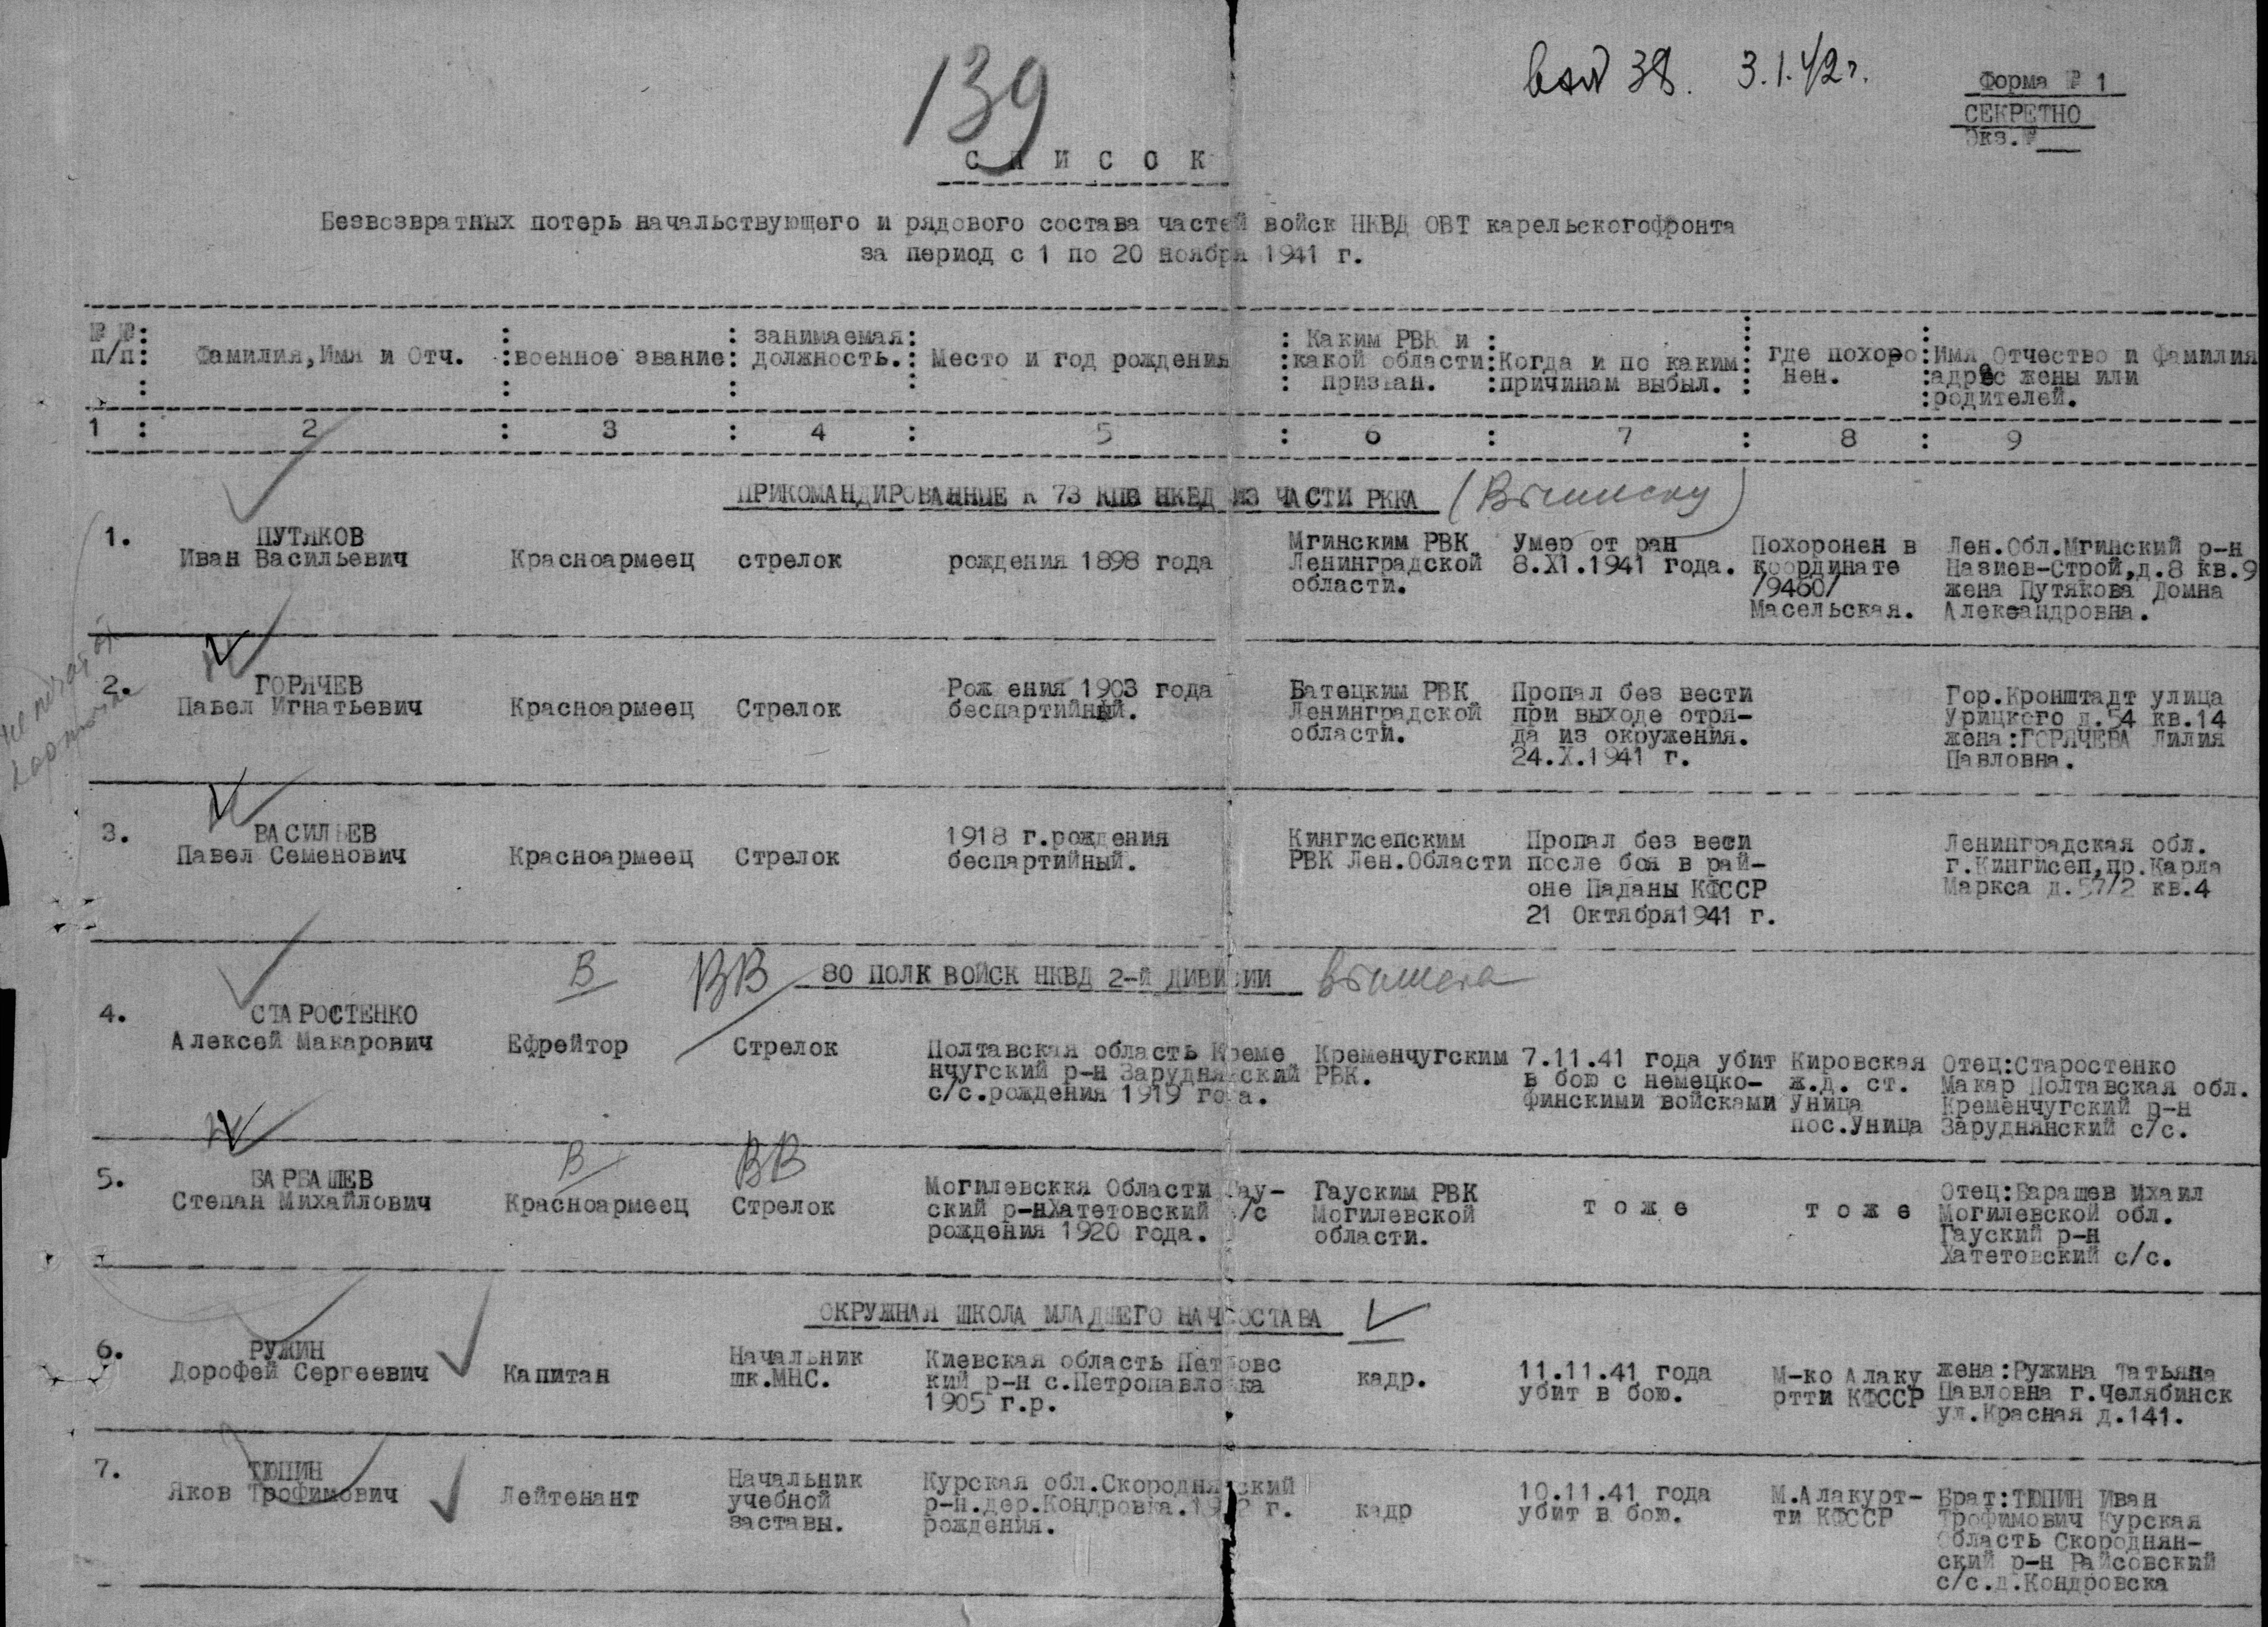 139
вход 38. 3.1.42г.
Форма № 1
СЕКРЕТНО
Экз.№
С П И С О К
Безвозвратных потерь начальствующего и рядового состава частей войск НКВД ОВТ карельскогофронта
за период с 1 по 20 ноября 1941 г.
№ №
п/п:
Фамилия,Имя и Отч.
:военное звание:
занимаемая:
должность.:
Место и год рождения
: Каким РВК и :
:какой области:
: призван.
Когда и по каким:
:причинам выбыл. :
где похоро:
нен.
Имя Отчество и Фамилия
:адрес жены или
:родителей.
1 : 2 : 3 : 4 : 5 : 6 : 7 : 8 : 9
ПРИКОМАНДИРОВАННЫЕ К 73 КПВ НКВД ИЗ ЧАСТИ РККА (Выписку)
1.
ПУТЯКОВ
Иван Васильевич
Красноармеец
стрелок
рождения 1898 года
Мгинским РВК
Ленинградской
области.
Умер от ран
8.XI.1941 года.
Похоронен в
координате
/9460/
Масельская.
Лен.Обл.Мгинский р-н
Назиев-Строй,д.8 кв.9
жена Путякова Домна
Александровна.
2.
ГОРЯЧЕВ
Павел Игнатьевич
Красноармеец
Стрелок
Рож ения 1903 года
беспартийный.
Батецким РВК
Ленинградской
области.
Пропал без вести
при выходе отря-
да из окружения.
24.X.1941 г.
Гор.Кронштадт улица
Урицкого д.54 кв.14
жена:ГОРЯЧЕВА Лилия
Павловна.
3.
ВАСИЛЬЕВ
Павел Семенович
Красноармеец
Стрелок
1918 г.рождения
беспартийный.
Кингисепским
РВК Лен.Области
Пропал без вести
после боя в рай-
оне Паданы КФССР
21 Октября1941 г.
Ленинградская обл.
г.Кингисеп,пр.Карла
Маркса д.57/2 кв.4
В ВВ 80 ПОЛК ВОЙСК НКВД 2-й ДИВИЗИИ
4.
СТАРОСТЕНКО
Алексей Макарович
Ефрейтор
Стрелок
Полтавская область Креме
нчугский р-н Заруднянский
с/с.рождения 1919 года.
Кременчугским
РВК.
7.11.41 года убит
в бою с немецко-
финскими войсками
Кировская
ж.д. ст.
Уница
пос.Уница
Отец:Старостенко
Макар Полтавская обл.
Кременчугский р-н
Заруднянский с/с.
В ВВ
5.
БАРБАШЕВ
Степан Михайлович
Красноармеец
Стрелок
Могилевсккя Области Гау-
ский р-нХатетовский с/с
рождения 1920 года.
Гауским РВК
Могилевской
области.
т о ж е
т о ж е
Отец:Барашев Ихаил
Могилевской обл.
Гауский р-н
Хатетовский с/с.
ОКРУЖНАЯ ШКОЛА МЛАДШЕГО НАЧСОСТАВА
6.
РУЖИН
Дорофей Сергеевич
Капитан
Начальник
шк.МНС.
Киевская область Петровс
кий р-н с.Петропавловка
1905 г.р.
кадр.
11.11.41 года
убит в бою.
М-ко Алаку
ртти КФССР
жена:Ружина Татьяна
Павловна г.Челябинск
ул.Красная д.141.
7.
ТЮПИН
Яков Трофимович
Лейтенант
Начальник
учебной
заставы.
Курская обл.Скороднянский
р-н.дер.Кондровка. г.
рождения.
кадр
10.11.41 года
убит в бою.
М.Алакурт-
ти КФССР
Брат:ТЮПИН Иван
Трофимович Курская
Область Скороднян-
ский р-н Райсовский
с/с.д.Кондровска